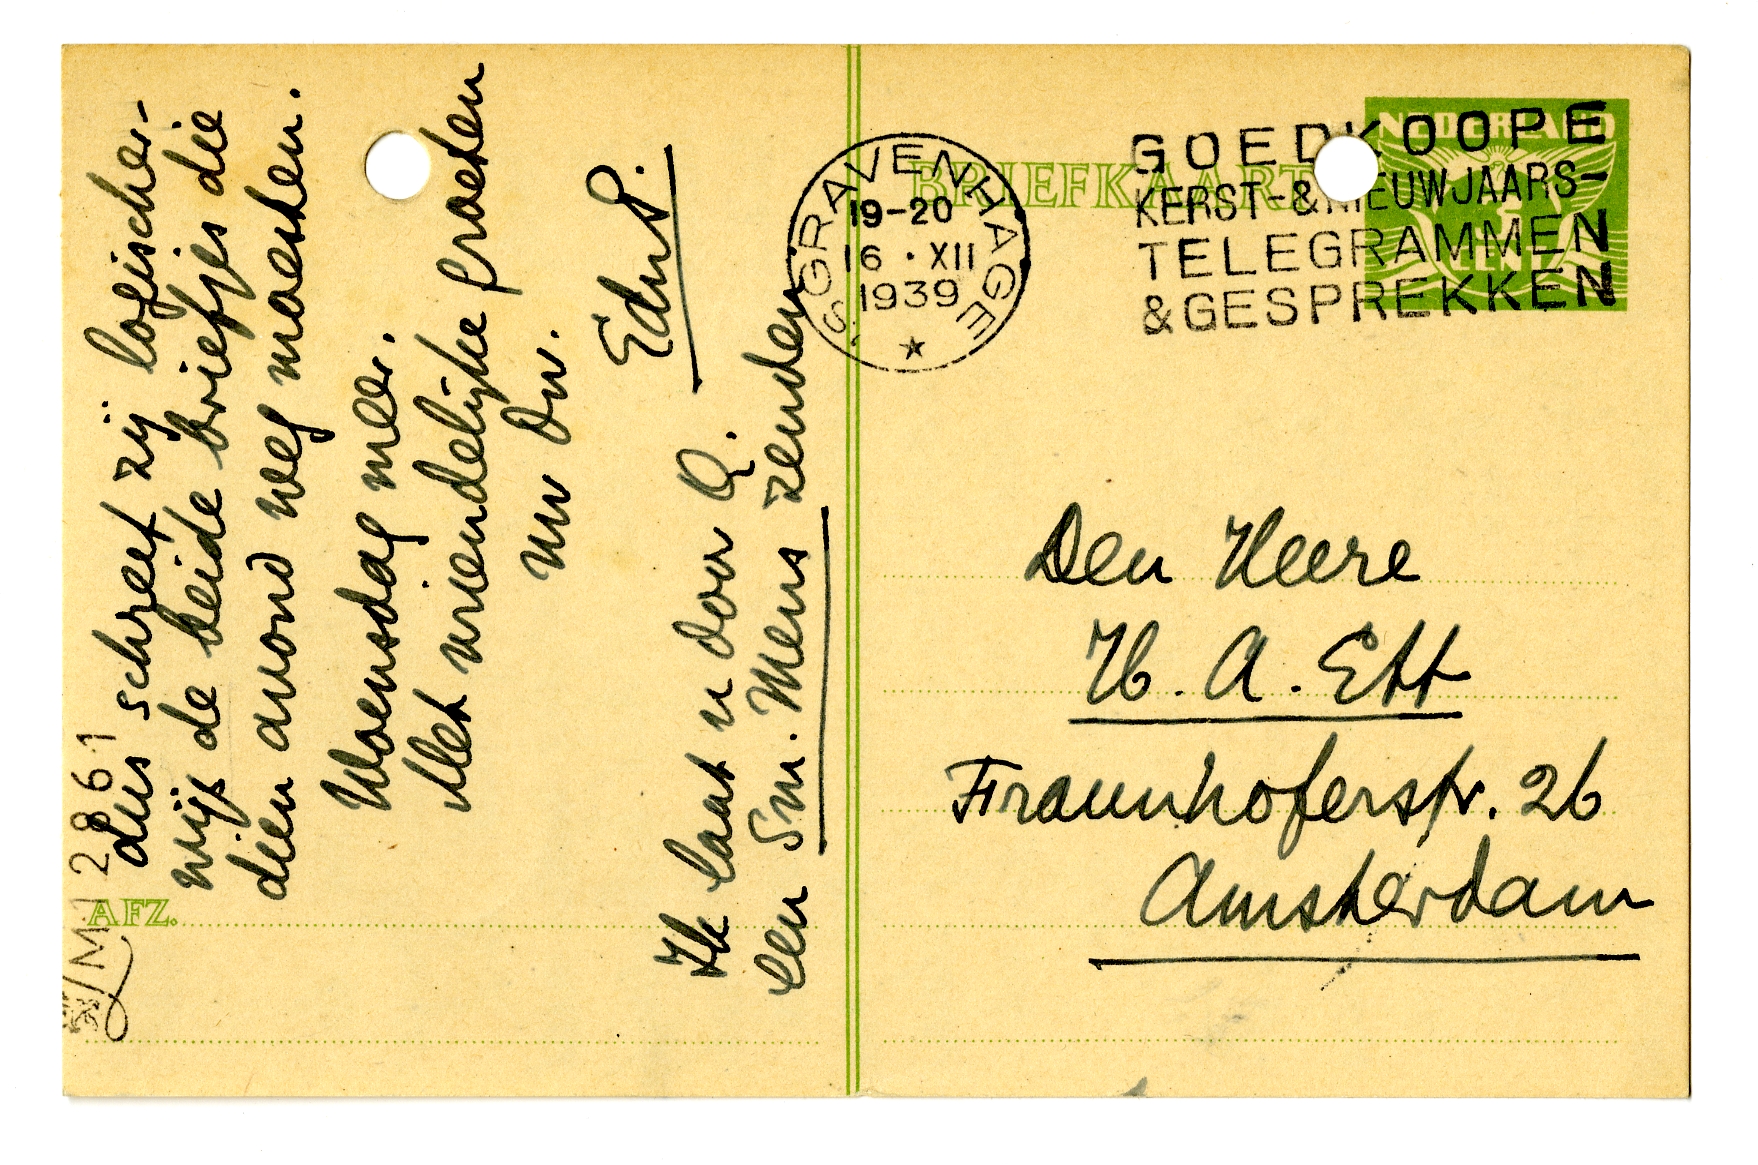 dus schreef zij logischer-
wijs de beide briefjes die
dien avond weg moesten.
Woensdag meer.
Met vriendelijke groeten
uw dw.
EduP.
Ik laat u door Q.
een Sm. Mens zenden.
M 2861
AFZ.
BRIEFKAART
'S GRAVENHAGE
19-20
16 · XII
1939
GOEDKOOPE
KERST-& NIEUWJAARS-
TELEGRAMMEN
& GESPREKKEN
NEDERLAND
Den Heere
H. A. Ett
Fraunhoferstr. 26
Amsterdam